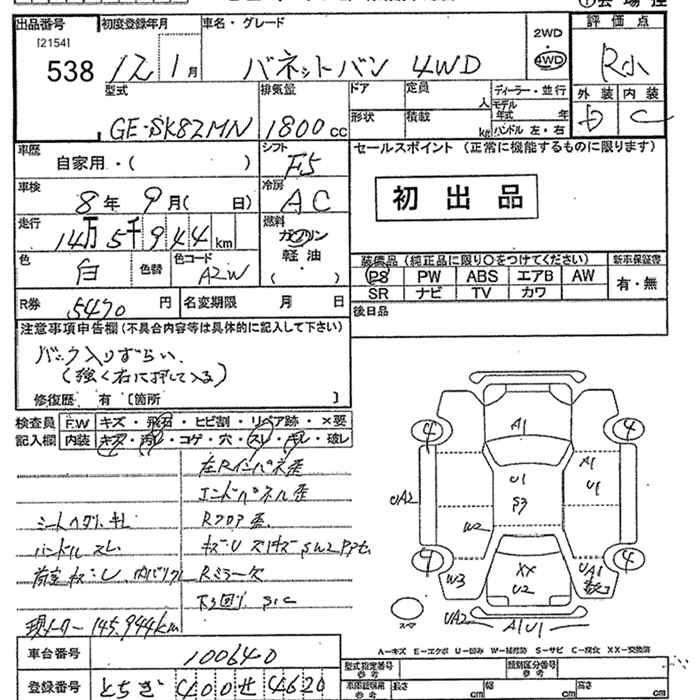 出品番号 初度登録年月 車名・グレード 評価点
[2154]
538 12 1月 バネットバン 4WD 2WD 4WD R小
型式 排気量 ドア 定員 人 ディーラー・並行 外装 内装
GE-SK82MN 1800cc 形状 積載 kg モデル年式 年 ハンドル 左・右 D C
車歴 自家用・( ) シフト F5 セールスポイント (正常に機能するものに限ります)
車検 8年 9月( 日) 冷房 AC 初出品
走行 14万5千944km 燃料 ガソリン
軽油・
( )
色 白 色替 色コード A2W
装備品 (純正品に限り○をつけてください) 新車保証書
PS PW ABS エアB AW 有・無
SR ナビ TV カワ
R券 5470円 名変期限 月 日 後日品
注意事項申告欄(不具合内容等は具体的に記入して下さい)
バック入りずらい、
(強く右に押して入る)
修復歴 有 [箇所 ]
検査員 F.W キズ・飛石・ヒビ割・リペア跡・×要
記入欄 内装 キズ・汚れ・コゲ・穴・スレ・キレ・破レ
左Rインパネ歪
エンドパネル歪
Rフロア歪
ハンドルスレ
Rミラー欠
下回り S1C
現メーター 145,944km
A1
4 4
U1
S3
A1
U1
UA2
W2
4 4
W3
XX
U2
UA1
UA2
A1U1
スペア
A-キズ E-エクボ U-凹み W-補修跡 S-サビ C-腐食 XX-交換済
車台番号 100640
登録番号 とちぎ 400せ4620
型式指定番号 参考 類別区分番号 参考
長さ cm 幅 cm 高さ cm